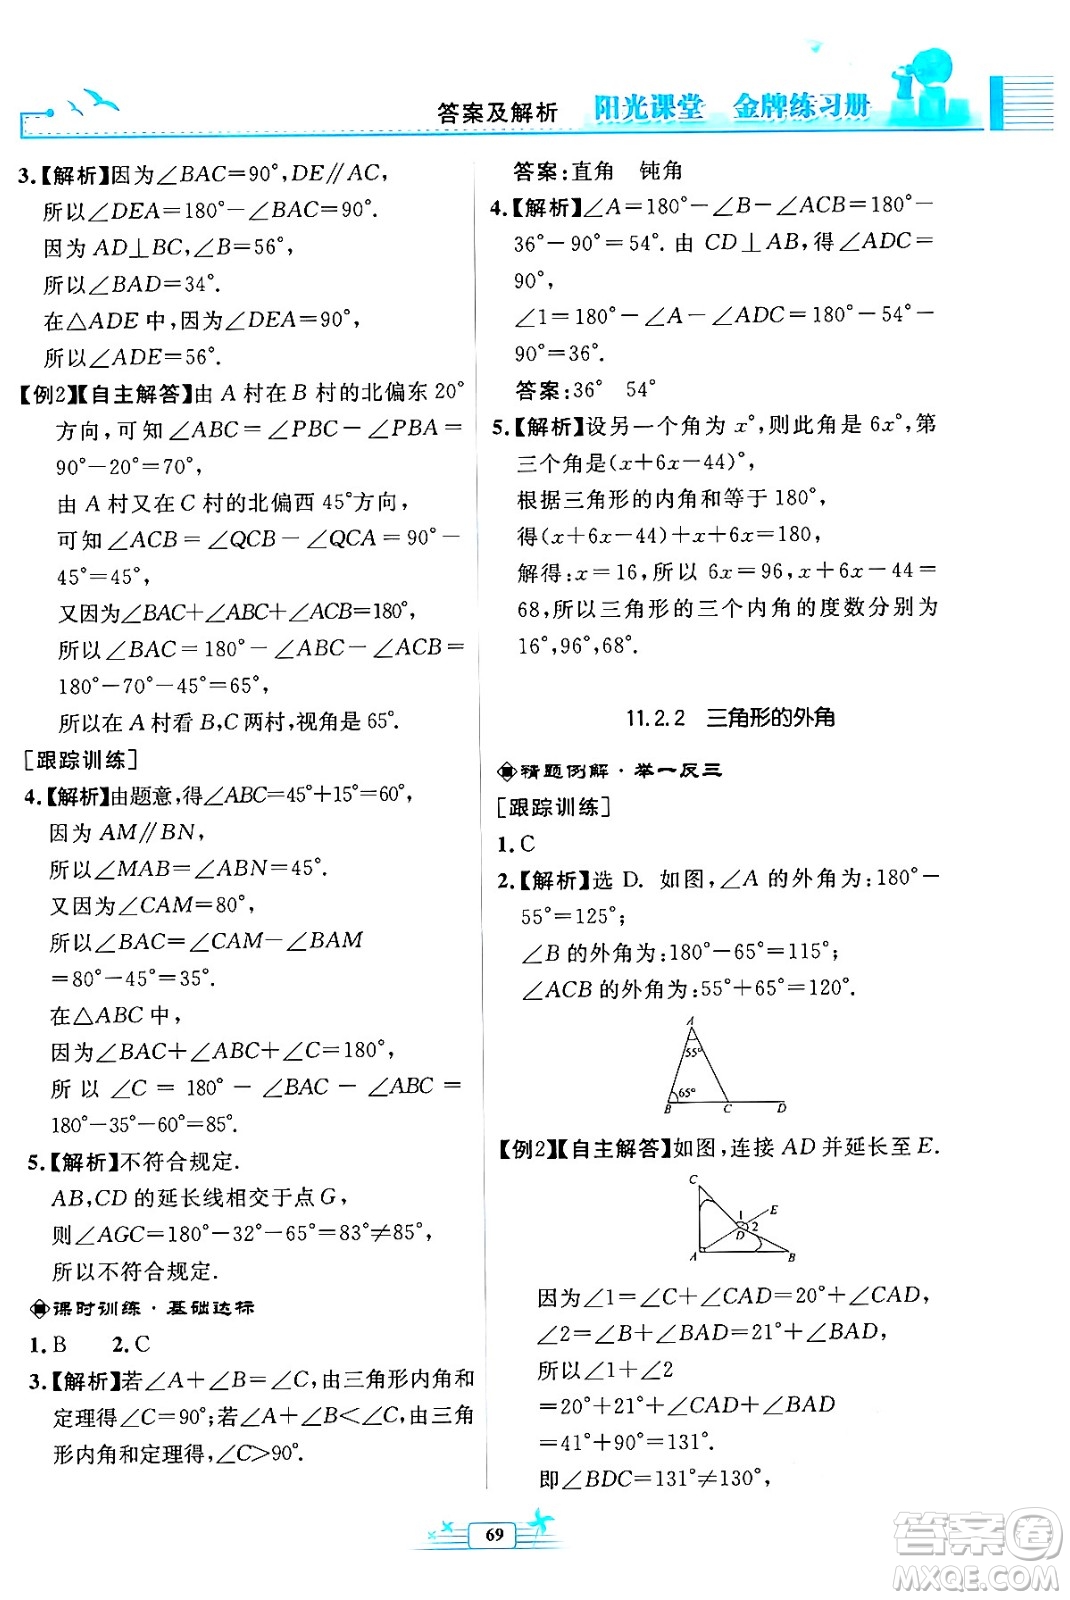 答案及解析 阳光课堂 金牌练习册
3.【解析】因为∠BAC=90°,DE∥AC,
所以∠DEA=180°-∠BAC=90°.
因为 AD⊥BC,∠B=56°,
所以∠BAD=34°.
在△ADE 中,因为∠DEA=90°,
所以∠ADE=56°.
【例2】【自主解答】由 A 村在 B 村的北偏东 20°
方向,可知∠ABC=∠PBC-∠PBA=
90°-20°=70°,
由 A 村又在 C 村的北偏西 45°方向,
可知∠ACB=∠QCB-∠QCA=90°-
45°=45°,
又因为∠BAC+∠ABC+∠ACB=180°,
所以∠BAC=180°-∠ABC-∠ACB=
180°-70°-45°=65°,
所以在 A 村看 B,C 两村,视角是 65°.
[跟踪训练]
4.【解析】由题意,得∠ABC=45°+15°=60°,
因为 AM∥BN,
所以∠MAB=∠ABN=45°.
又因为∠CAM=80°,
所以∠BAC=∠CAM-∠BAM
=80°-45°=35°.
在△ABC 中,
因为∠BAC+∠ABC+∠C=180°,
所以∠C=180°-∠BAC-∠ABC=
180°-35°-60°=85°.
5.【解析】不符合规定.
AB,CD 的延长线相交于点 G,
则∠AGC=180°-32°-65°=83°≠85°,
所以不符合规定.
课时训练·基础达标
1.B 2.C
3.【解析】若∠A+∠B=∠C,由三角形内角和
定理得∠C=90°;若∠A+∠B<∠C,由三角
形内角和定理得,∠C>90°.
答案:直角 钝角
4.【解析】∠A=180°-∠B-∠ACB=180°-
36°-90°=54°.由 CD⊥AB,得∠ADC=
90°,
∠1=180°-∠A-∠ADC=180°-54°-
90°=36°.
答案:36° 54°
5.【解析】设另一个角为 x°,则此角是 6x°,第
三个角是(x+6x-44)°,
根据三角形的内角和等于 180°,
得(x+6x-44)+6x+x=180,
解得:x=16,所以 6x=96,x+6x-44=
68,所以三角形的三个内角的度数分别为
16°,96°,68°.
11.2.2 三角形的外角
精题例解·举一反三
[跟踪训练]
1.C
2.【解析】选 D. 如图,∠A 的外角为:180°-
55°=125°;
∠B 的外角为:180°-65°=115°;
∠ACB 的外角为:55°+65°=120°.
A
55°
65°
B C D
【例2】【自主解答】如图,连接 AD 并延长至 E.
C
1 E
2
D
A B
因为∠1=∠C+∠CAD=20°+∠CAD,
∠2=∠B+∠BAD=21°+∠BAD,
所以∠1+∠2
=20°+21°+∠CAD+∠BAD
=41°+90°=131°.
即∠BDC=131°≠130°,
69
答案卷
MXQE.COM